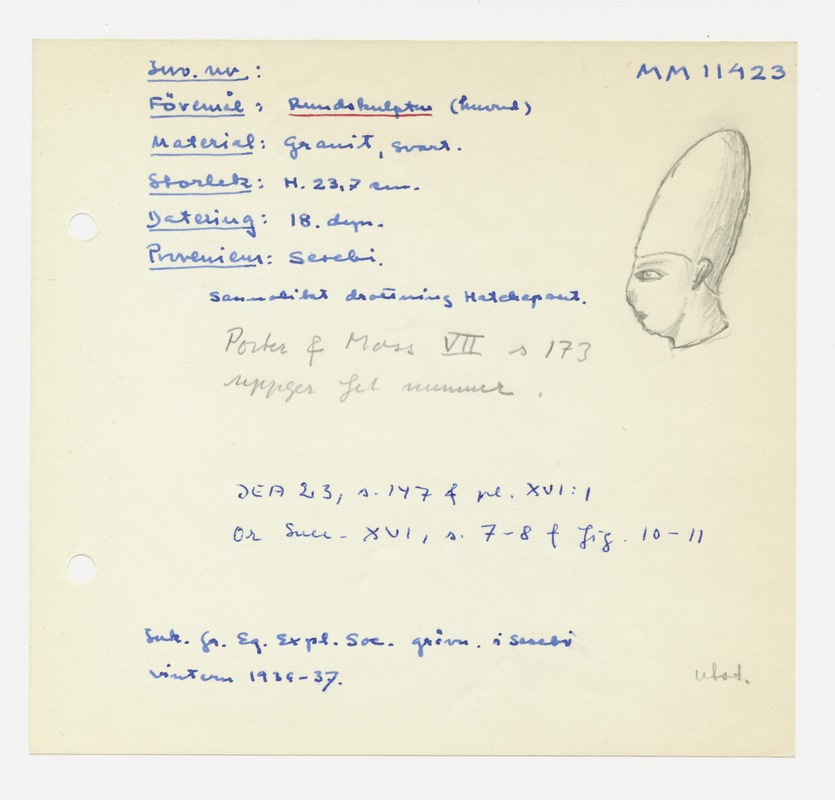 Inv. nr.: MM 11423
Föremål: Rundskulptur (huvud)
Material: Granit, svart.
Storlek: H. 23,7 cm.
Datering: 18. dyn.
Proveniens: Sesebi.
Sannolikt drottning Hatchepsut.
Porter & Moss VII s 173
uppger fel nummer.
JEA 23, s. 147 & pl. XVI:1
Or Suec. XVI, s. 7-8 & fig. 10-11
Ink. fr. Eg. Expl. Soc. grävn. i Sesebi
vintern 1936-37.